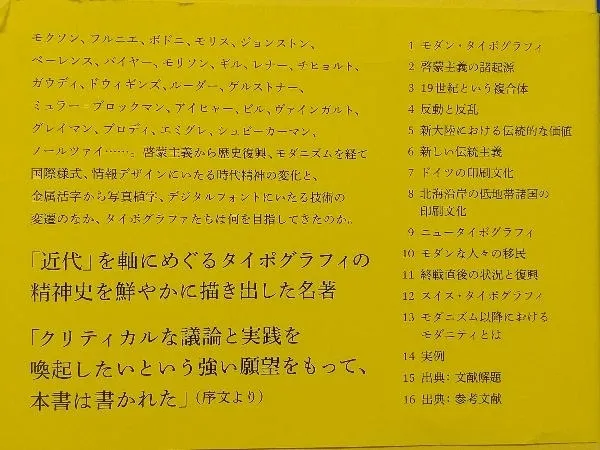 モクソン、フルニエ、ボドニ、モリス、ジョンストン、
ベーレンス、バイヤー、モリソン、ギル、レナー、チヒョルト、
ガウディ、ドウィギンズ、ルーダー、ゲルストナー、
ミュラー=ブロックマン、アイヒャー、ビル、ヴァインガルト、
グレイマン、ブロディ、エミグレ、シュピーカーマン、
ノールツァイ……。啓蒙主義から歴史復興、モダニズムを経て
国際様式、情報デザインにいたる時代精神の変化と、
金属活字から写真植字、デジタルフォントにいたる技術の
変遷のなか、タイポグラファたちは何を目指してきたのか。
「近代」を軸にめぐるタイポグラフィの
精神史を鮮やかに描き出した名著
「クリティカルな議論と実践を
喚起したいという強い願望をもって、
本書は書かれた」(序文より)
1 モダン・タイポグラフィ
2 啓蒙主義の諸起源
3 19世紀という複合体
4 反動と反乱
5 新大陸における伝統的な価値
6 新しい伝統主義
7 ドイツの印刷文化
8 北海沿岸の低地帯諸国の
印刷文化
9 ニュータイポグラフィ
10 モダンな人々の移民
11 終戦直後の状況と復興
12 スイス・タイポグラフィ
13 モダニズム以降における
モダニティとは
14 実例
15 出典:文献解題
16 出典:参考文献